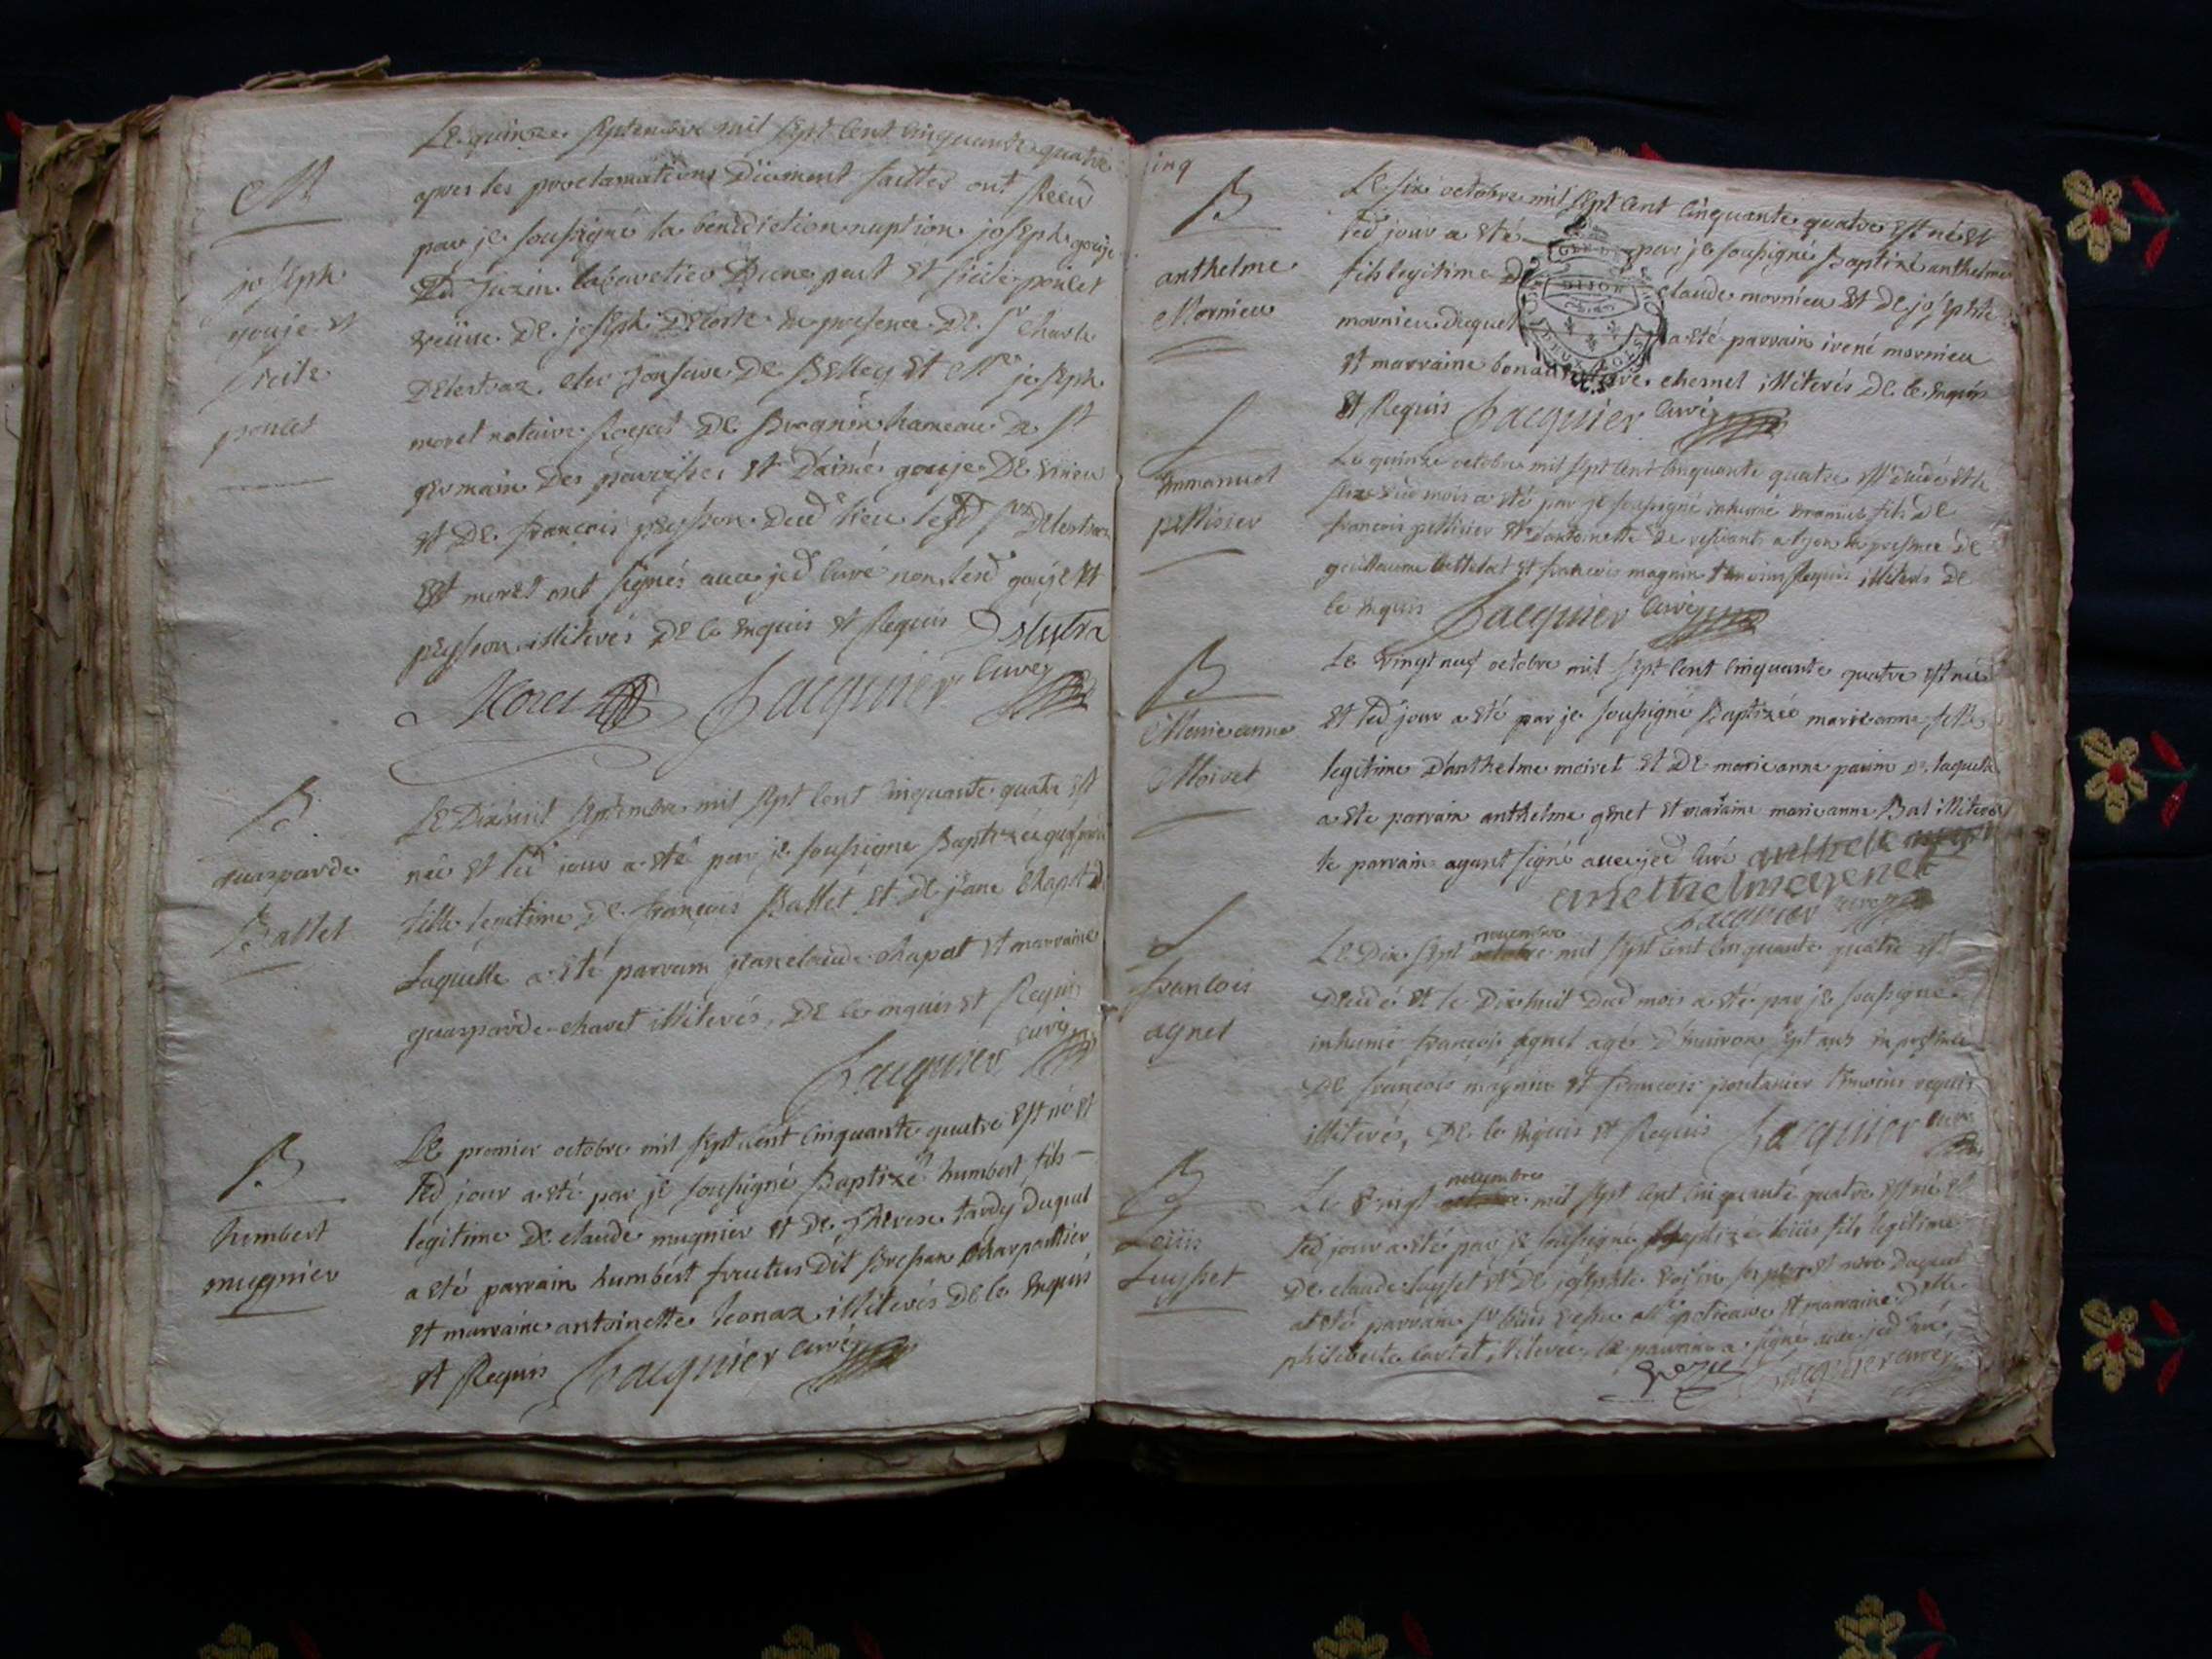 M
joseph
gouje et
Cecile
poncet
Le quinze septembre mil sept cent cinquante quatre
apres les proclamations Düement faittes ont Receü
par je soussigné la benediction nuption joseph gouje
De labouretier D'une part et poncet
veüve De joseph Delorte en presence De Sr Charle
Delestraz De Belley et Mre joseph
moret notaire Royal De Brognin hameau De St
germain Des parroisses et D'aimé gouje De virieu
et De françois peysson Dud lieu lesd Sr Delestraz
Et moret ont signés avec jed Curé non lesd gouje et
peysson illiterés De ce enquis et Requis Delestra
Moret Jacquier Curé
B
guasparde
Ballet
Le Dixhuit septembre mil sept Cent Cinquante quatre est
née et led jour a été par je soussigne Baptizée guasparde
fille legitime De françois Ballet et De jane Chapot De
Laquelle a été parrain jean claude chapot et marraine
guasparde chavet illiterés, De ce enquis et Requis
Jacquier curé
B
humbert
mugnier
Le premier octobre mil sept Cent Cinquante quatre est né et
led jour a été par je soussigné Baptizé humbert fils
legitime De claude mugnier et De therese tardy Duquel
a été parrain humbert fructus Dit Bressan Charpantier
et marraine antoinette leonaz illiterés De ce enquis
et Requis Jacquier Curé
inq
B
anthelme
Mornieu
Le six octobre mil sept Cent Cinquante quatre est né et
led jour a été par je soussigné Baptizé anthelme
fils legitime De claude mornieu et De josephte
mornieu Duquel a été parrain irené mornieu
et marraine bonaventure chemel illiterés De ce enquis
et Requis Jacquier Curé
DIJON
S
Emmanuel
pellisier
Le quinze octobre mil sept Cent Cinquante quatre est Decedé et le
seize dud mois a été par je soussigné inhumé emanuel fils De
francois pellisier et D'antoinette De residants a lyon en presence De
guillaume et francois magnin temoins Requis illiterés De
ce enquis Jacquier Curé
B
Marieanne
Moiret
Le vingt neuf octobre mil sept Cent Cinquante quatre est née
et led jour a été par je soussigné Baptizée marieanne fille
legitime D'anthelme moiret et De marieanne De laquelle
a été parrain anthelme genet et maraine marieanne Bal illiterée
le parrain ayant signé avec jed Curé
anthelme genet
Jacquier curé
S
francois
agnel
Le Dix sept novembre mil sept Cent Cinquante quatre est
Decedé et le Dixhuit Dud mois a été par je soussigné
inhumé françois agnel agé D'environ sept ans en presence
De françois magnin et francois pontanier temoins requis
illiterés, De ce enquis et Requis Jacquier curé
B
Loüis
Luysset
Le vingt novembre mil sept Cent Cinquante quatre est né et
led jour a été par je soussigné Baptizé loüis fils legitime
De claude luysset et De josephte voisin ses pere et mere Duquel
a été parrain Sr loüis Vezu Mtre apoticaire, et marraine Delle
philiberte Cartet, illiterée le parrain a signé avec jed Curé,
Vezu Jacquier curé